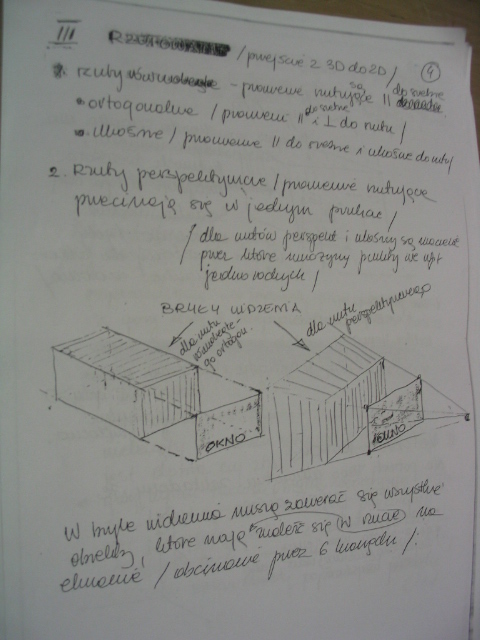 III RZUTOWANIE / przejście z 3D do 2D / 4
1. rzuty równoległe - promienie rzutujące są || do siebie
• ortogonalne / promienie || do siebie i ⊥ do rzutu /
• ukośne / promienie || do siebie i ukośne do rzutu /
2. Rzuty perspektywiczne / promienie rzutujące
przecinają się w jednym punkcie /
/ dla rzutów perspekt i ukośnych są macierze
przez które mnożymy punkty we wsp
jednorodnych /
BRYŁY WIDZENIA
dla rzutu
równoległe-
go ortogon.
dla rzutu
perspektywicznego
OKNO
OKNO
W bryle widzenia muszą zawierać się wszystkie
obiekty, które mają znaleźć się (w rzucie) na
ekranie / obcinanie przez 6